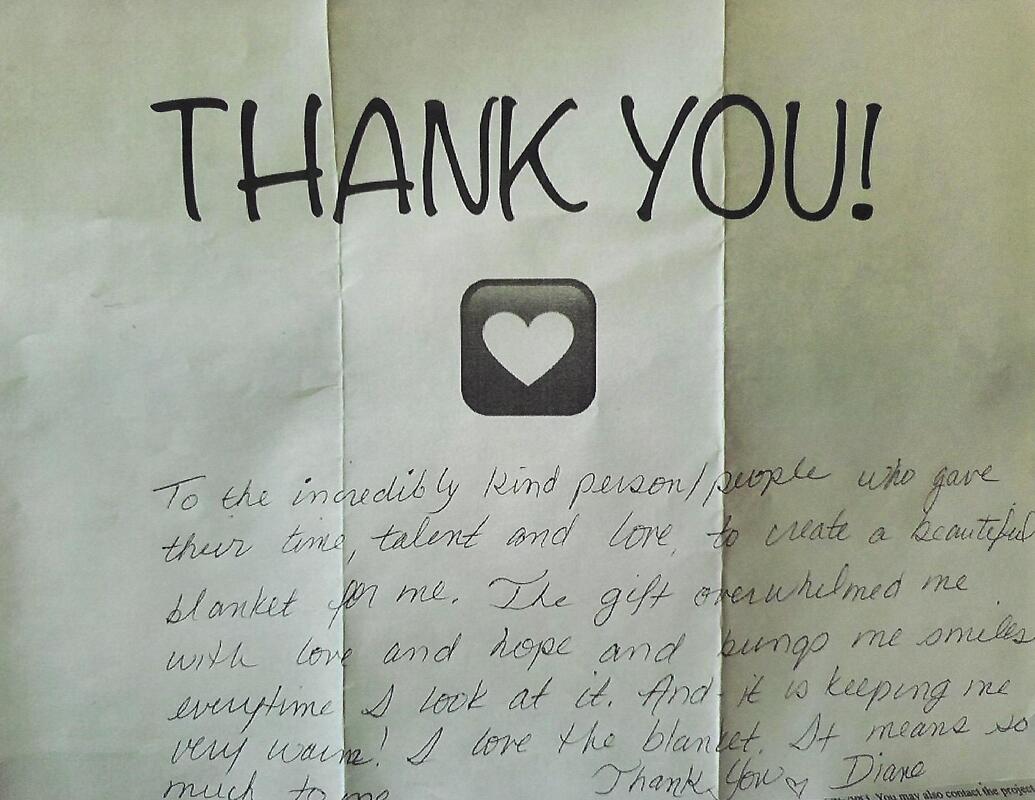 THANK YOU!
To the incredibly kind person/people who gave
their time, talent and love, to create a beautiful
blanket for me. The gift overwhelmed me
with love and hope and brings me smiles
everytime I look at it. And it is keeping me
very warm! I love the blanket. It means so
much to me Thank You ♡ Diane
You may also contact the project